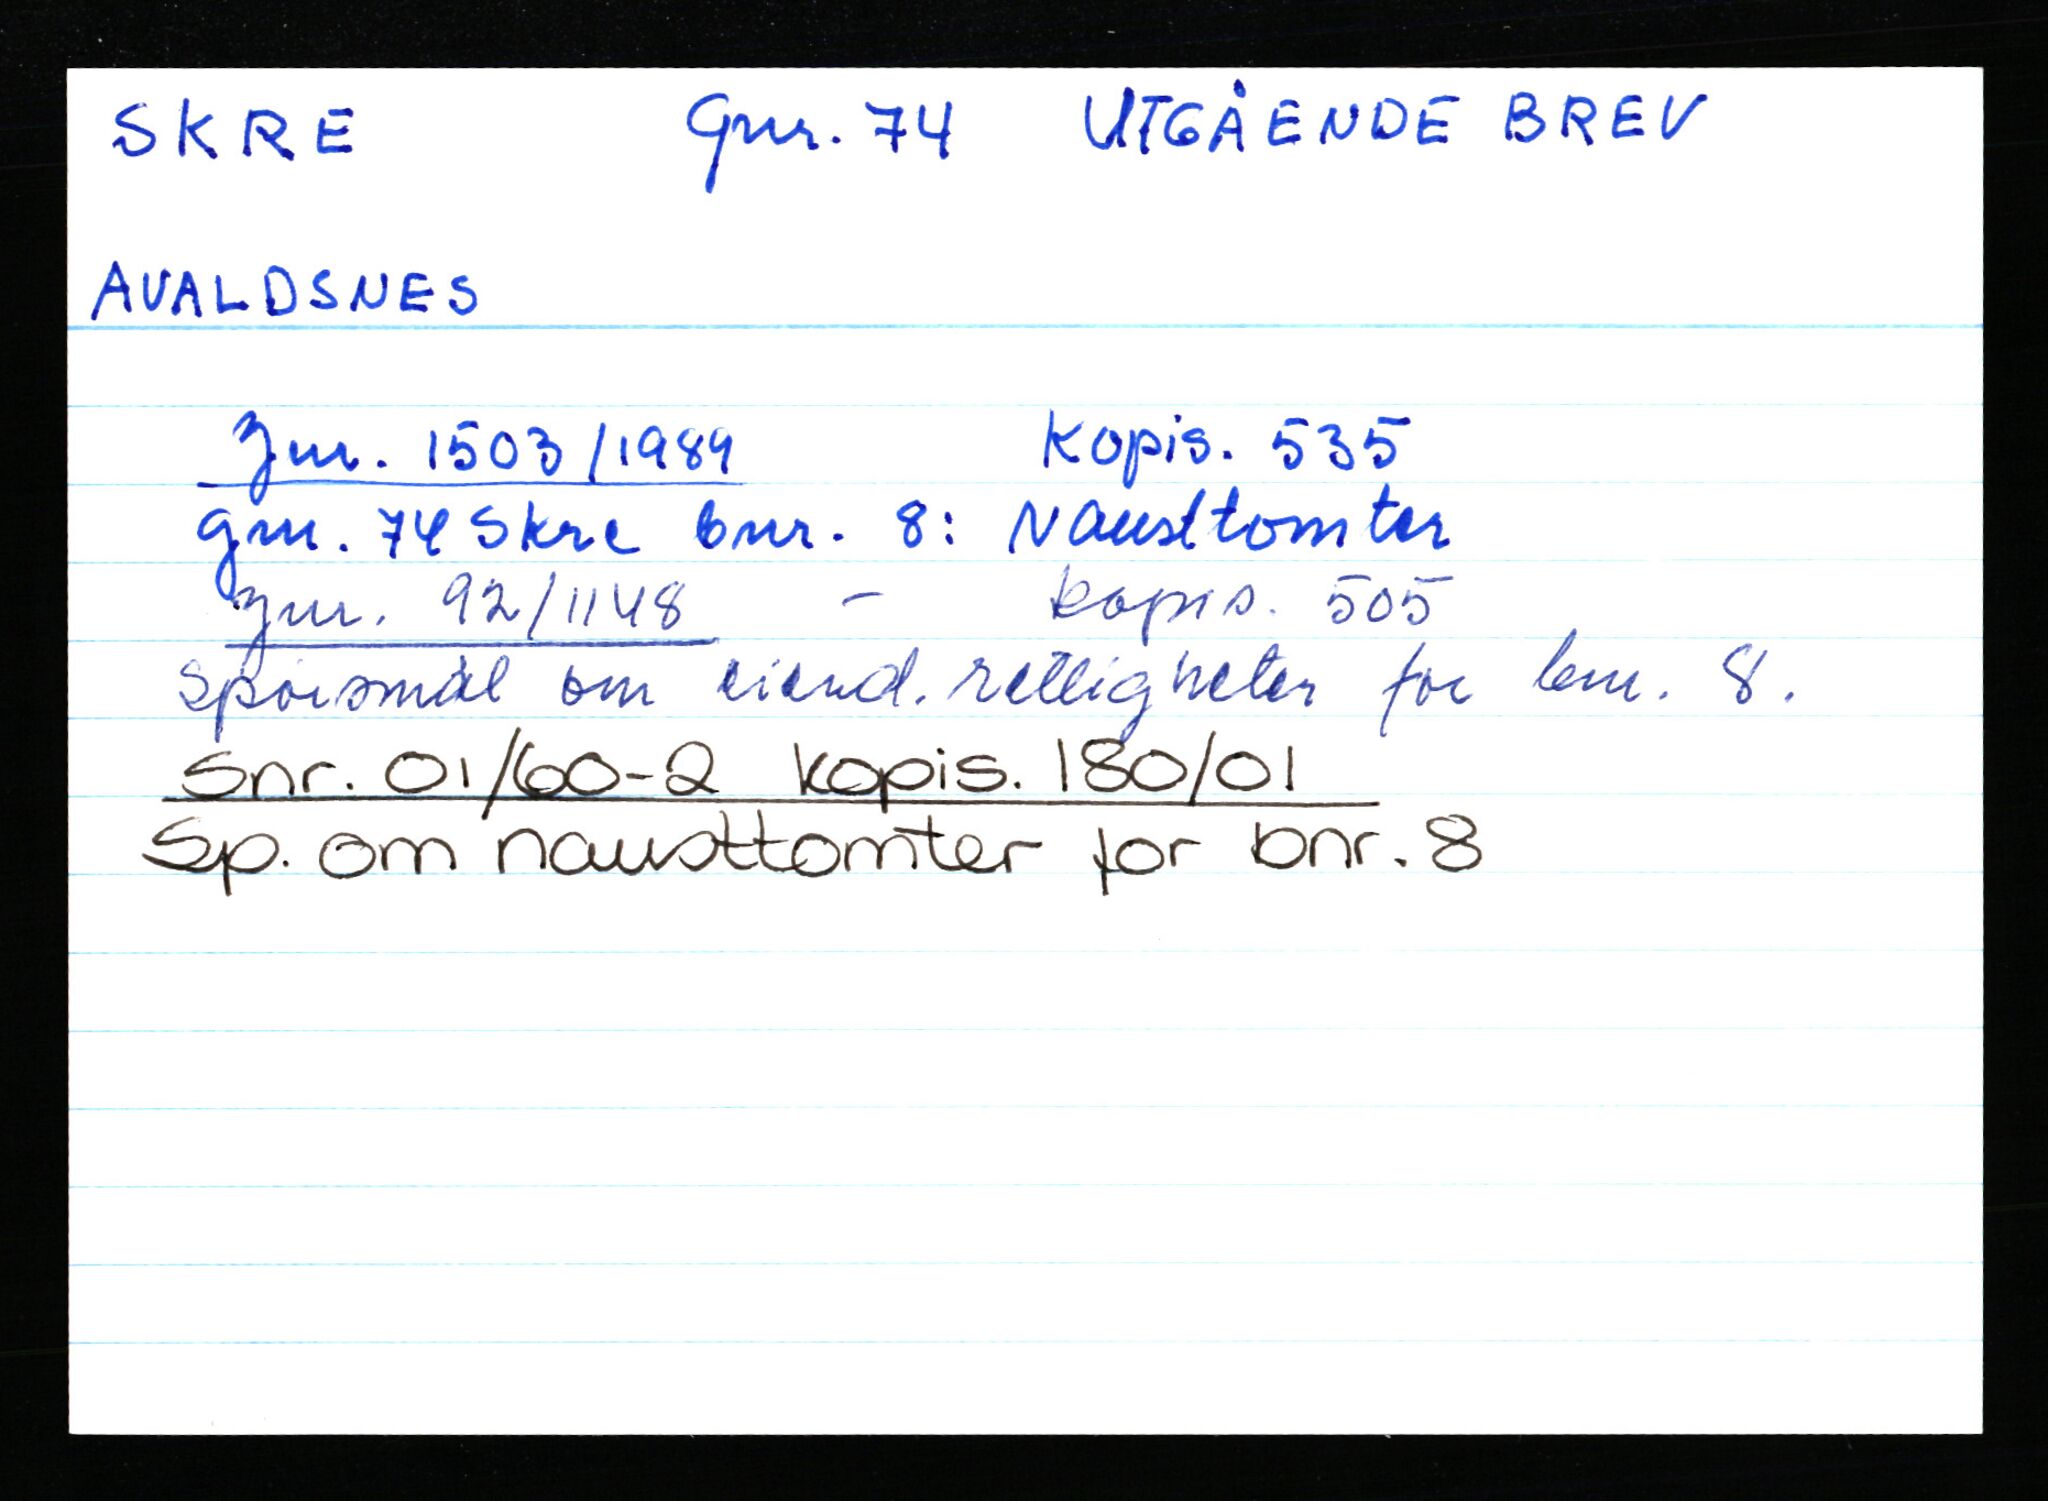 SKRE Gnr. 74 UTGÅENDE BREV
AVALDSNES
Jnr. 1503/1989 Kopis. 535
gnr. 74 Skre bnr. 8: Nausttomter
Jnr. 92/1148 - kopis. 505
spørsmål om eiend. rettigheter for bnr. 8.
Snr. 01/60-2 kopis. 180/01
Sp. om nausttomter for bnr. 8